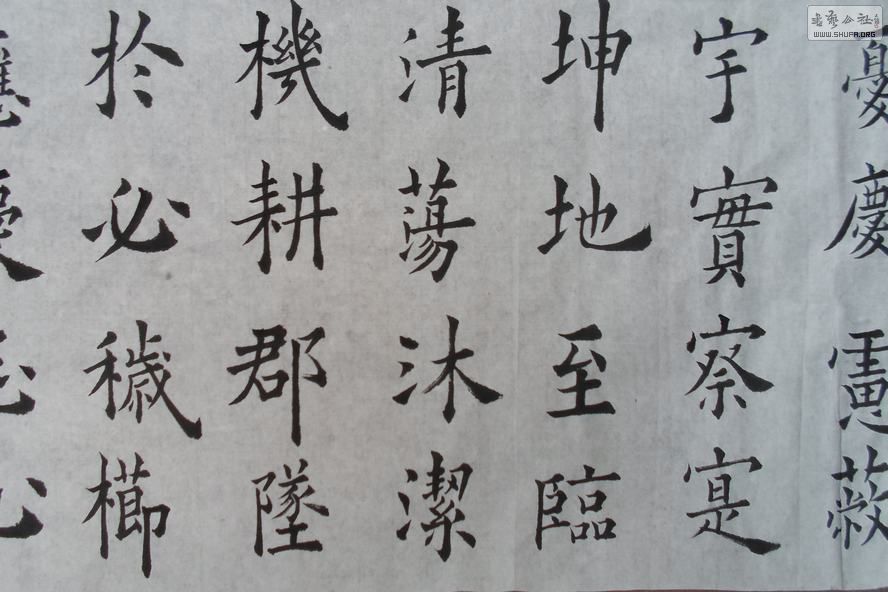 慶
宇實察寔
坤地至臨
清蕩沐潔
機耕郡墜
於必穢櫛
書藝公社
WWW.SHUFA.ORG